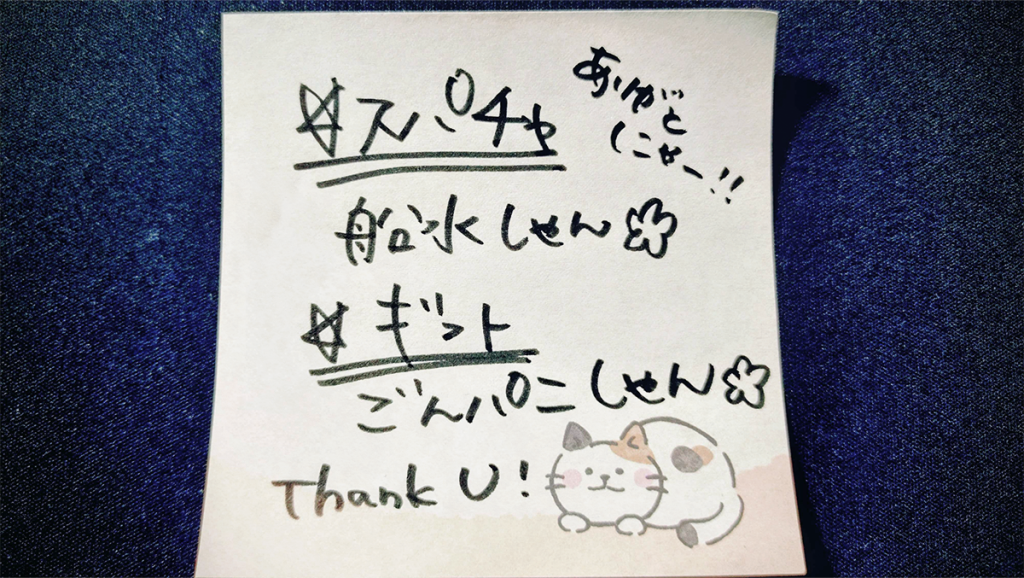 ☆スパチャ
ありがと
にゃー!!
船水しゃん
☆ギフト
ごんパニしゃん
Thank U!